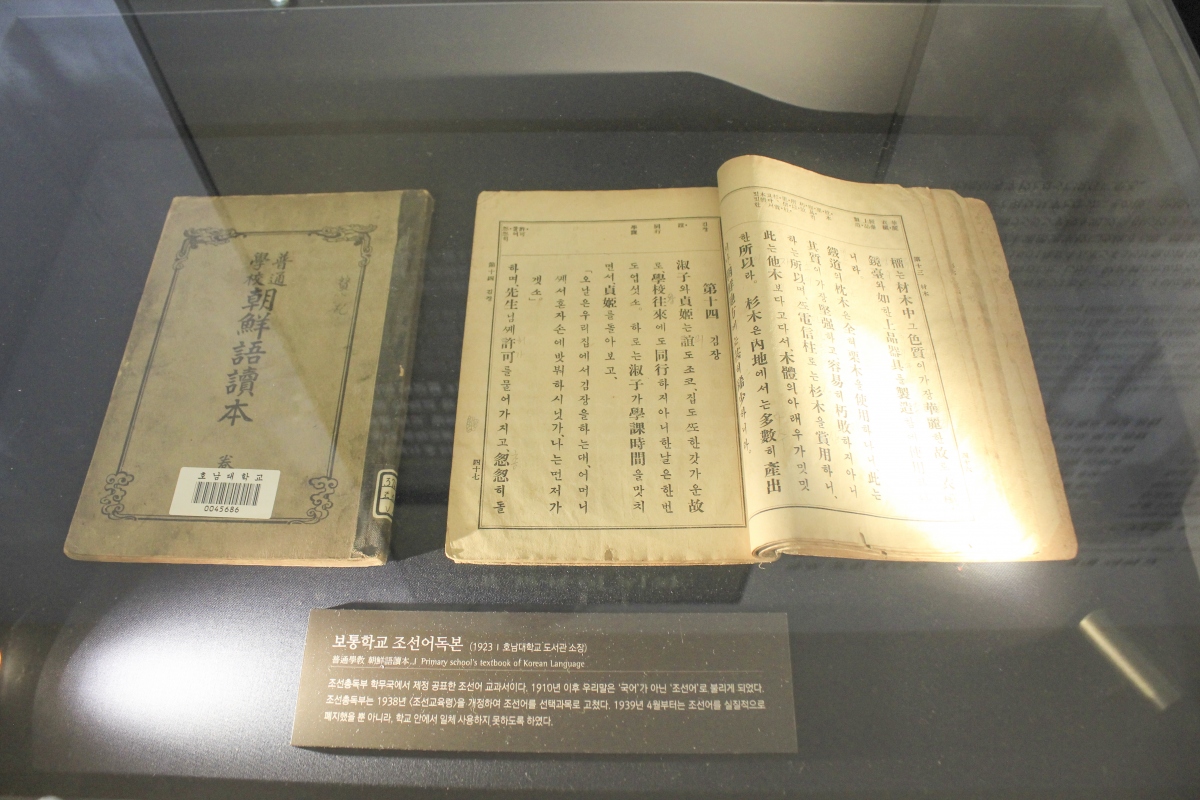 普通
學校
朝鮮語讀本
卷
호남대학교
0045686
第十三 材木
欄는 材木中 그 色質이 가장 華麗한 故
鏡臺와 如한 上品器具를 製造
니라
鐵道의 枕木은 全혀 栗木을 使用하나니 此는
其質이 가장 堅强하고 容易히 朽敗하지 아니
하는 所以며 또 電信柱로는 杉木을 賞用하니,
此는 他木보다 고다서, 木體의 아래 우가 밋밋
한 所以라. 杉木은 內地에서는 多數히 產出
第十四 김장
淑子와 貞姬는 誼도 조코, 집도 또한 갓가운 故
로, 學校往來에도 同行하지 아니한 날은 한 번
도 업섯소. 하로는 淑子가 學課時間을 맛치
면서 貞姬를 돌아보고,
「오날은 우리 집에서 김장을 하는대, 어머니
께서 혼자 손에 밧뷔하시닛가, 나는 먼저 가
겟소」
하며, 先生님께 許可를 물어 가지고, 忽忽히 돌
第十四 김장
四十七
보통학교 조선어독본 (1923 | 호남대학교 도서관 소장)
普通學敎 朝鮮語讀本」 Primary school's textbook of Korean Language
조선총독부 학무국에서 제정 공표한 조선어 교과서이다. 1910년 이후 우리말은 '국어'가 아닌 '조선어'로 불리게 되었다.
조선총독부는 1938년 〈조선교육령〉을 개정하여 조선어를 선택과목으로 고쳤다. 1939년 4월부터는 조선어를 실질적으로
폐지했을 뿐 아니라, 학교 안에서 일체 사용하지 못하도록 하였다.